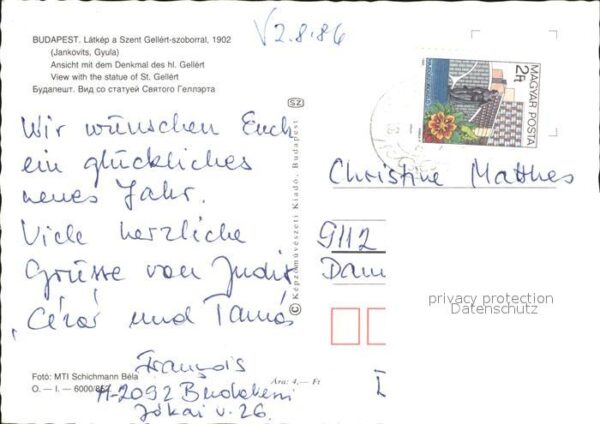 √2.8.86
BUDAPEST. Látkép a Szent Gellért-szoborral, 1902
(Jankovits, Gyula)
Ansicht mit dem Denkmal des hl. Gellért
View with the statue of St. Gellért
Будапешт. Вид со статуей Святого Геллэрта
MAGYAR POSTA
2 Ft
SZ
Wir wünschen Euch
ein glückliches
neues Jahr.
Viele herzliche
Grüsse von Judit
Cézár und Tamás
François
H-2092 Budakeszi
Jókai u. 26.
© Képzőművészeti Kiadó, Budapest
Christine Matthes
9112
Dam
privacy protection
Datenschutz
Fotó: MTI Schichmann Béla
O. — I. — 6000/85
Ára: 4,— Ft